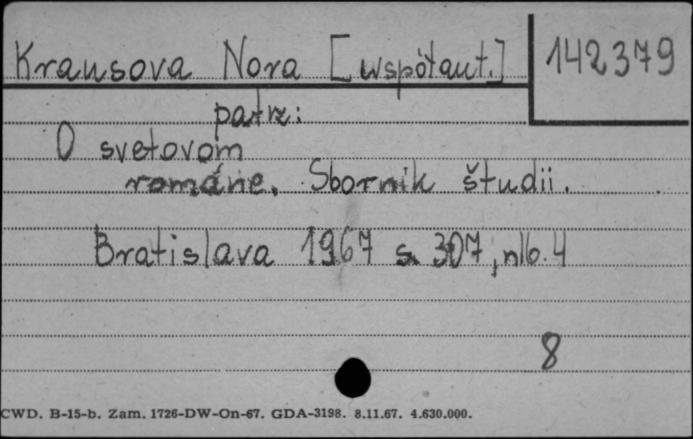 Krausova Nora [współaut.]
142379
patrz:
O svetovom
románe. Sbornik študii.
Bratislava 1967 s. 307, nlb. 4
8
CWD. B-15-b. Zam. 1726-DW-On-67. GDA-3198. 8.11.67. 4.630.000.